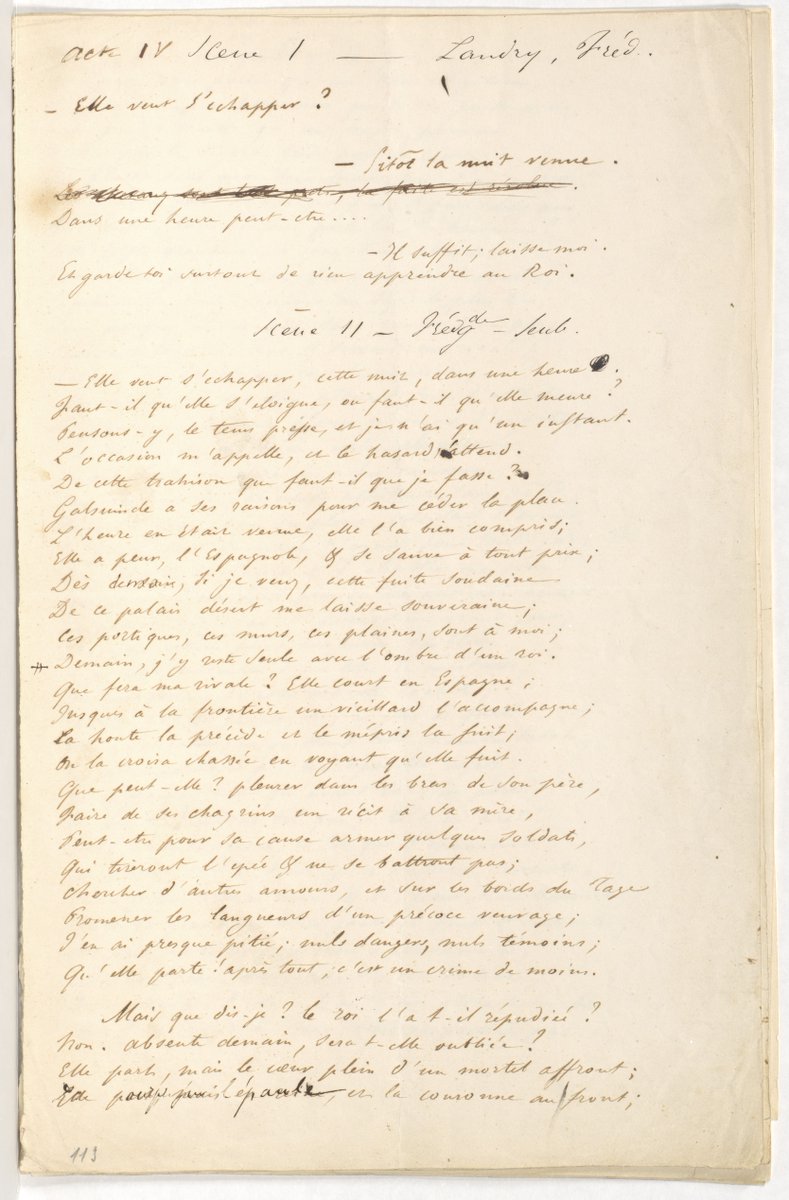 Acte IV Scene I — Landry, Fréd.
— Elle veut s'echapper ?
— Sitôt la nuit venue.
la fuite est résolue.
Dans une heure peut-etre....
— Il suffit; laisse moi.
Et garde toi surtout de rien apprendre au Roi.
Scène II — Frédgde — Seule.
— Elle veut s'echapper, cette nuit, dans une heure.
Faut-il qu'elle s'eloigne, ou faut-il qu'elle meure ?
Pensons-y, le tems presse, et je n'ai qu'un instant.
L'occasion m'appelle, et le hasard attend.
De cette trahison que faut-il que je fasse ?
Galsuinde a ses raisons pour me céder la place.
L'heure en etait venue, elle l'a bien compris;
Elle a peur, l'Espagnole, & se sauve à tout prix;
Dès demain, si je veux, cette fuite soudaine
De ce palais désert me laisse souveraine;
Ces portiques, ces murs, ces plaines, sont à moi;
# Demain, j'y reste seule avec l'ombre d'un roi.
Que fera ma rivale ? Elle court en Espagne;
Jusques à la frontière un vieillard l'accompagne;
La honte la précède et le mépris la suit;
On la croira chassée en voyant qu'elle fuit.
Que peut-elle ? pleurer dans les bras de son père,
Faire de ses chagrins un récit à sa mère,
Peut-etre pour sa cause armer quelques soldats,
Qui tireront l'epée & ne se battront pas;
Chercher d'autres amours, et sur les bords du Tage
Promener les langueurs d'un précoce veuvage;
J'en ai presque pitié; nuls dangers, nuls témoins;
Qu'elle parte ! après tout, c'est un crime de moins.
Mais que dis-je ? le roi l'a t-il répudiée ?
Non. absente demain, sera t-elle oubliée ?
Elle part, mais le cœur plein d'un mortel affront;
Elle et la couronne au front;
113